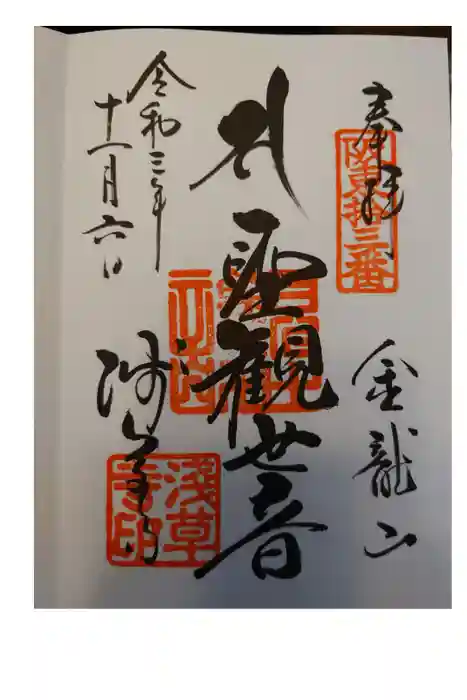 奉拝
坂東拾三番
金龍山
聖観世音
浅草寺
浅草
寺印
令和三年
十一月六日